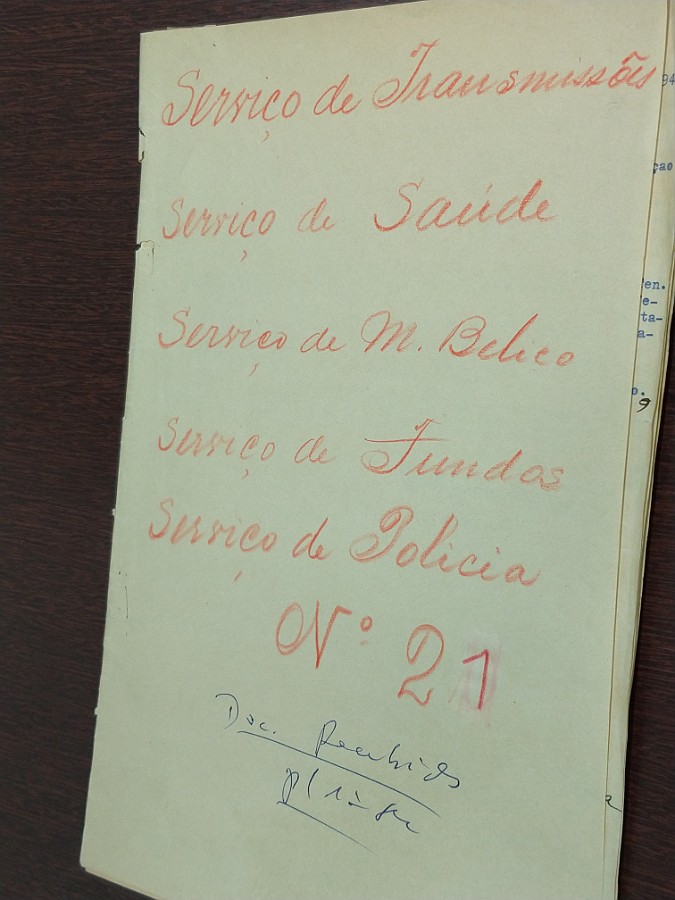 Serviço de Transmissões
Serviço de Saúde
Serviço de M. Belico
Serviço de Fundos
Serviço de Policia
Nº 21
Doc. Recebidos
94
çao
en.
e-
ta-
a-
o.
9